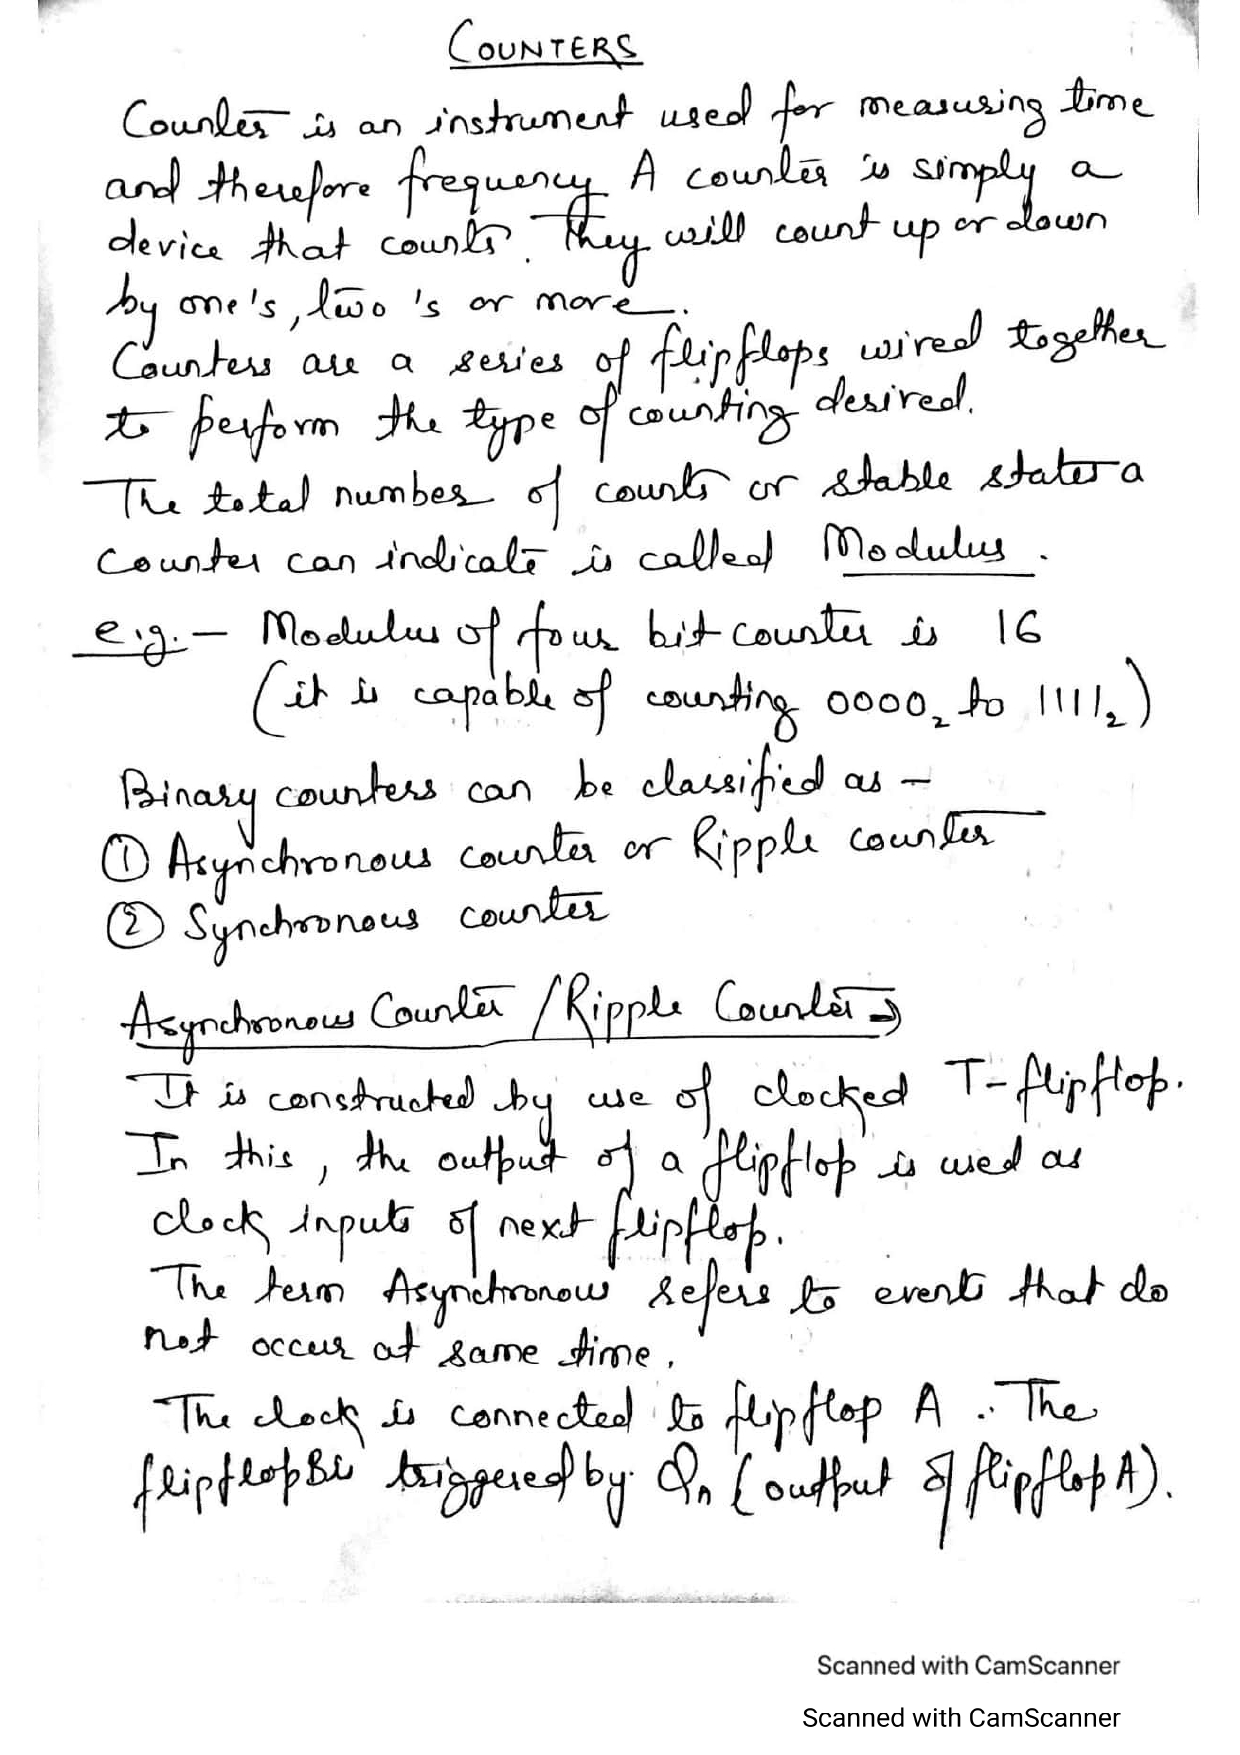 COUNTERS
Counter is an instrument used for measuring time
and therefore frequency A counter is simply a
device that counts. They will count up or down
by one's, two's or more.
Counters are a series of flipflops wired together
to perform the type of counting desired.
The total number of counts or stable states a
Counter can indicate is called Modulus.
e.g. - Modulus of four bit counter is 16
(it is capable of counting 0000₂ to 1111₂)
Binary counters can be classified as -
① Asynchronous counter or Ripple counter
② Synchronous counter
Asynchronous Counter / Ripple Counter →
It is constructed by use of clocked T-flipflop.
In this, the output of a flipflop is used as
clock inputs of next flipflop.
The term Asynchronous refers to events that do
not occur at same time.
The clock is connected to flipflop A. The
flipflop B is triggered by Qₙ (output of flipflop A).
Scanned with CamScanner
Scanned with CamScanner